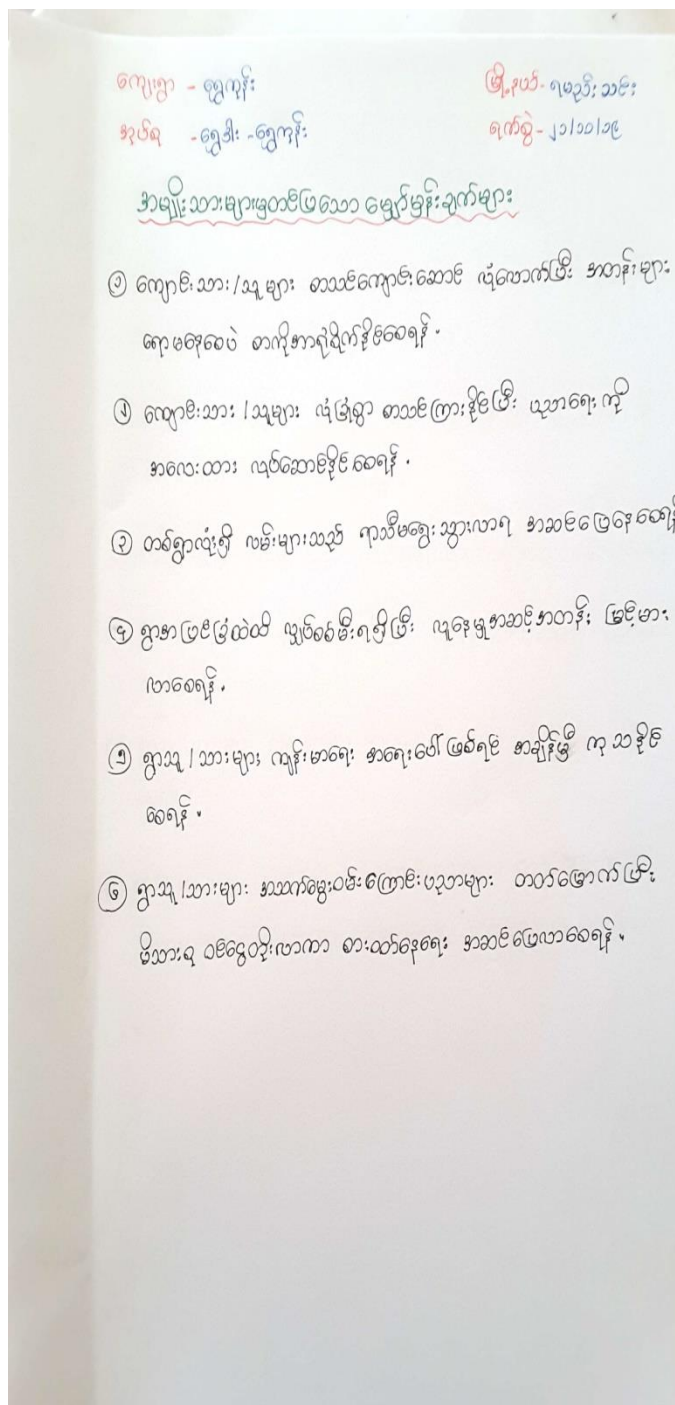 ကျေးရွာ - ရွှေကုန်း
မြို့နယ် - ရမည်းသင်း
အုပ်စု - ရွှေဒါး - ရွှေကုန်း
ရက်စွဲ - ၂၁/၁၁/၁၉
အမျိုးသားများမှတင်ပြသော မျှော်မှန်းချက်များ
၁ ကျောင်းသား/သူများ စာသင်ကျောင်းဆောင် လုံလောက်ပြီး အတန်းများ
ရောမနေစေပဲ စာကိုအာရုံစိုက်နိုင်စေရန်.
၂ ကျောင်းသား/သူများ လုံခြုံစွာ စာသင်ကြားနိုင်ပြီး ပညာရေးကို
အလေးထား လုပ်ဆောင်နိုင်စေရန်.
၃ တစ်ရွာလုံးရှိ လမ်းများသည် ရာသီမရွေးသွားလာရ အဆင်ပြေနေစေရန်
၄ ရွာအပြင်ခြံထဲထိ လျှပ်စစ်မီးရရှိပြီး လူနေမှုအဆင့်အတန်း မြင့်မား
လာစေရန်.
၅ ရွာသူ/သားများ ကျန်းမာရေး အရေးပေါ်ဖြစ်ရင် အချိန်မှီ ကုသနိုင်
စေရန်.
၆ ရွာသူ/သားများ အသက်မွေးဝမ်းကြောင်းပညာများ တတ်မြောက်ပြီး
မိသားစု ဝင်ငွေတိုးလာကာ စားဝတ်နေရေး အဆင်ပြေလာစေရန်.